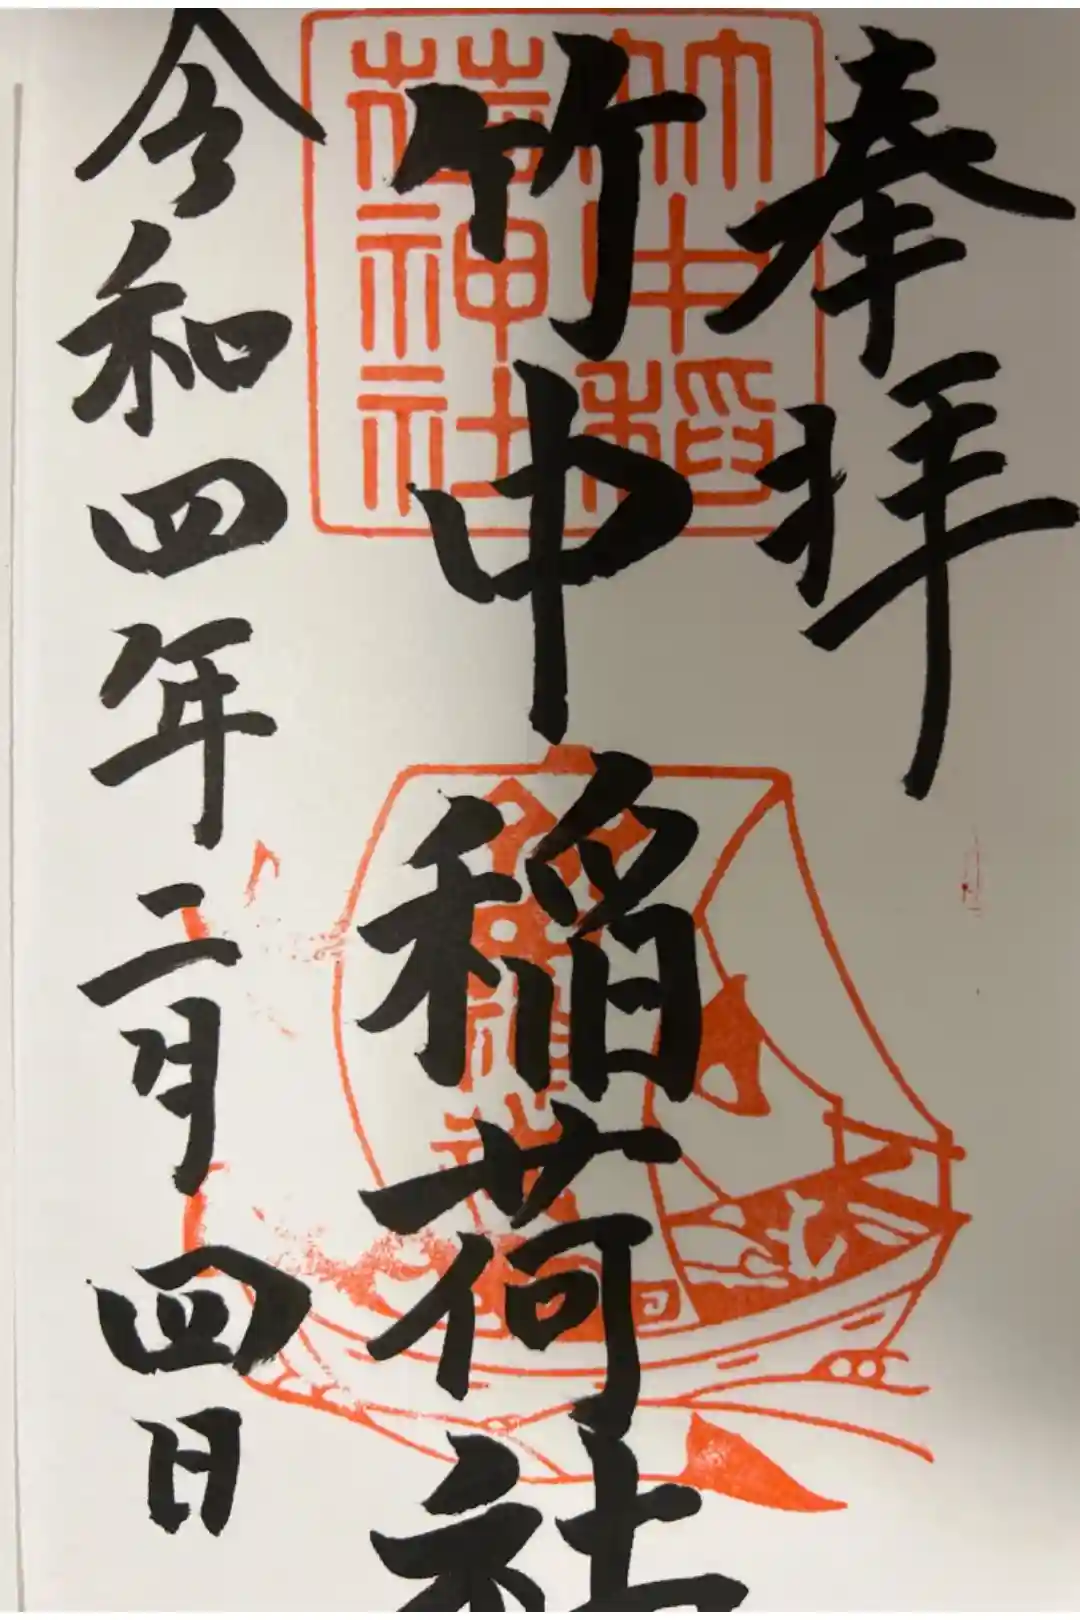 奉拝
竹中稲荷社
令和四年二月四日
竹中稲
荷神社